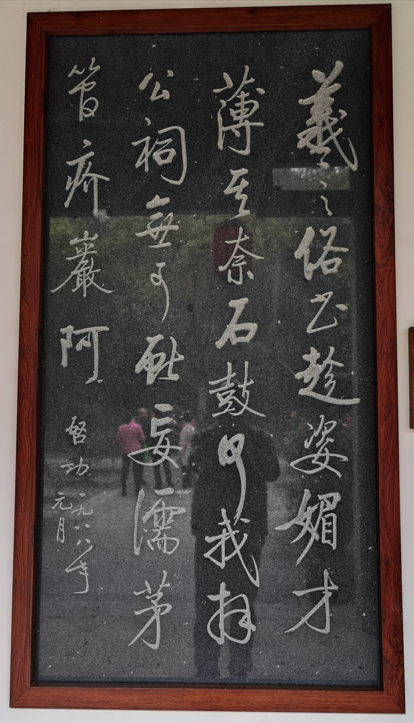 羲之俗書趁姿媚才
薄將奈石鼓何我拜
公祠無可獻妄濡茅
管疥巖阿
啓功一九八八年
元月